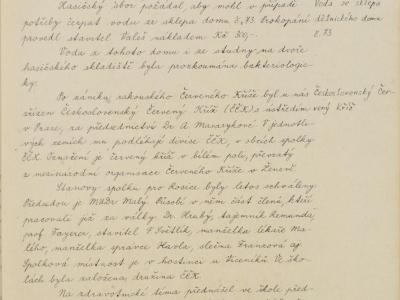 Hasičský sbor požádal, aby mohl v případě
potřeby čerpat vodu ze sklepa domu č. 73. Prokopání
provedl stavitel Valeš nákladem Kč 300,-.
Voda ze sklepa
dělnického domu
č. 73
Voda z tohoto domu i ze studny na dvoře
hasičského skladiště byla prozkoumána bakteriologic-
ky.
Po zániku rakouského Červeného Kříže byl u nás
zřízen Československý Červený Kříž (ČČK) s ústředím
v Praze, za předsednictví Dr. A. Masarykové. V jednotli-
vých zemích mu podléhají divise ČČK, v obcích spolky
ČČK. Označení je červený kříž v bílém poli, převzatý
z mezinárodní organisace Červeného Kříže v Ženevě.
Československý Čer-
vený Kříž
Stanovy spolku pro Rosice byly letos schváleny.
Předsedou je MUDr. Malý. Působí v něm část členů, kteří
pracovali již za války: Dr. Hrubý, tajemník Remunda,
prof. Tayerer, stavitel F. Světlík, manželka lékaře Ma-
lého, manželka správce Havla, slečna Francová aj.
Spolková místnost je v hostinci u Víceníků. Ve ško-
lách byla založena družina ČČK.
Na zdravotnické téma přednášel ve škole před-